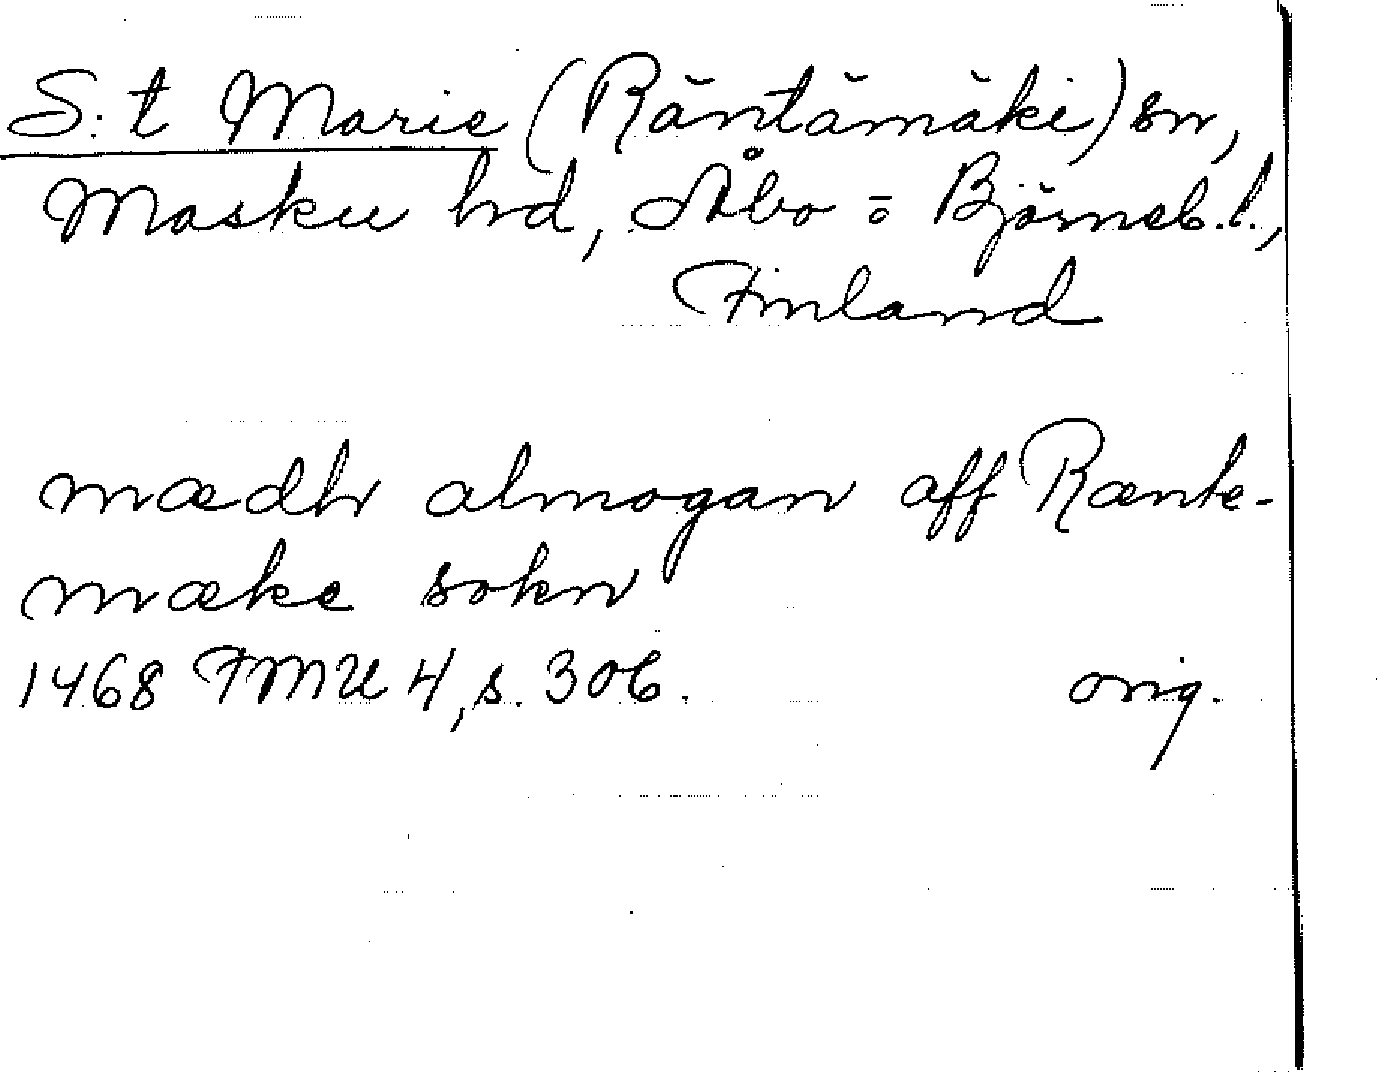 S:t Marie (Räntämäki) sn,
Masku hd, Åbo = Björneb. l.,
Finland
mædh almogan aff Rænte-
mæke sokn
1468 FMU 4, s. 306. orig.